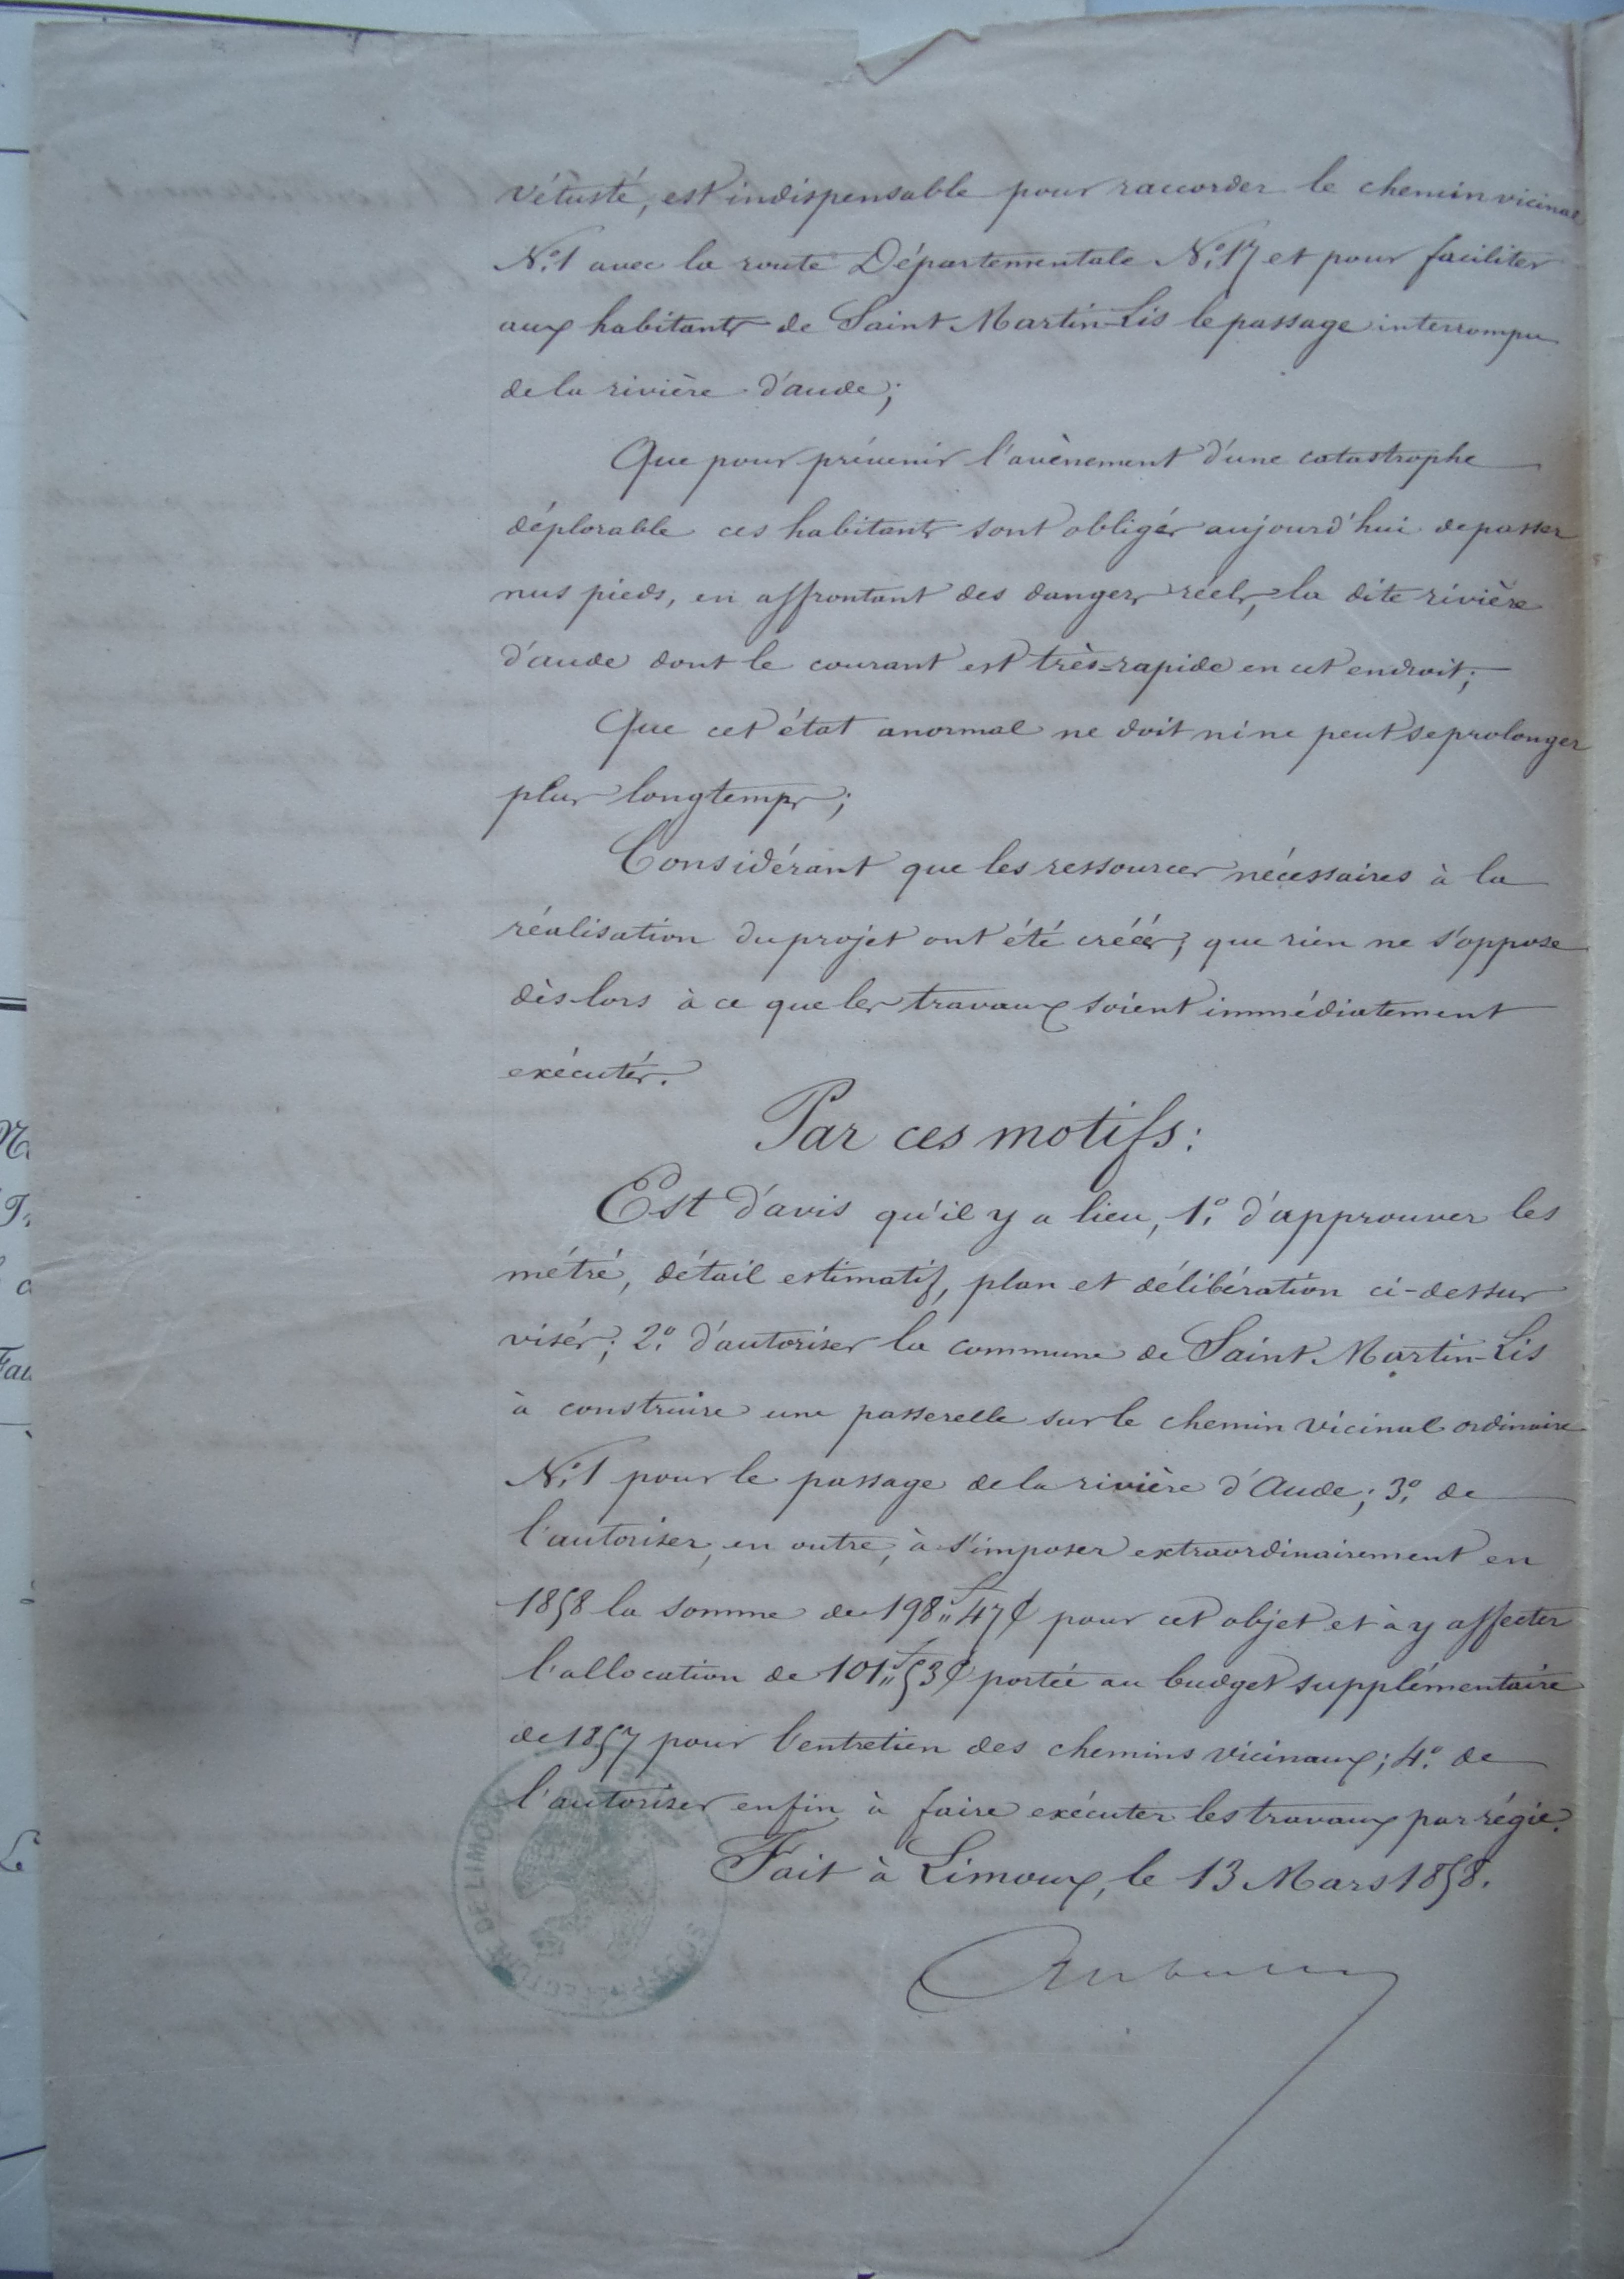 vétusté, est indispensable pour raccorder le chemin vicinal
N.° 1 avec la route Départementale N.° 17 et pour faciliter
aux habitants de Saint Martin-Lis le passage interrompu
de la rivière d'aude;
Que pour prévenir l'avènement d'une catastrophe
déplorable ces habitants sont obligés aujourd'hui de passer
nus pieds, en affrontant des dangers réels, la dite rivière
d'aude dont le courant est très-rapide en cet endroit;
Que cet état anormal ne doit ni ne peut se prolonger
plus longtemps;
Considérant que les ressources nécessaires à la
réalisation du projet ont été créés; que rien ne s'oppose
dès-lors à ce que les travaux soient immédiatement
exécutés.
Par ces motifs:
Est d'avis qu'il y a lieu, 1.° d'approuver les
métré, détail estimatif, plan et délibération ci-dessus
visés; 2.° d'autoriser la commune de Saint Martin-Lis
à construire une passerelle sur le chemin vicinal ordinaire
N.° 1 pour le passage de la rivière d'Aude; 3.° de
l'autoriser, en outre, à s'imposer extraordinairement en
1858 la somme de 198f,,47c pour cet objet et à y affecter
l'allocation de 101f,,53c portée au budget supplémentaire
de 1857 pour l'entretien des chemins vicinaux; 4.° de
l'autoriser enfin à faire exécuter les travaux par régie.
Fait à Limoux, le 13 Mars 1858.
SOUS-PRÉFECTURE DE LIMOUX